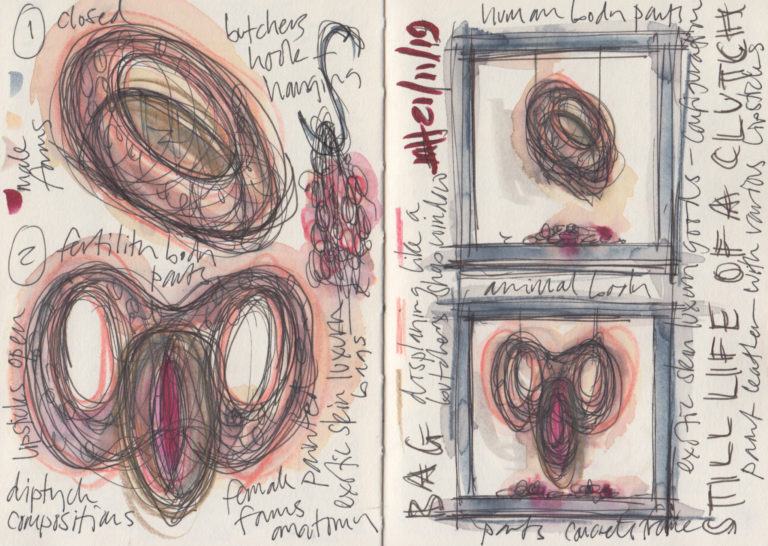 1 closed
butchers
hook
hanging
male
forms
2 fertility body
parts
lipsticks open
diptych
compositions
female
forms
anatomy
painted
exotic skin luxury
bags
human body parts
21/11/19
displaying like a
butchers shop window
BAG
animal body
parts
exotic skin luxury goods - configuration
STILL LIFE OF A CLUTCH
paint leather with various lipsticks